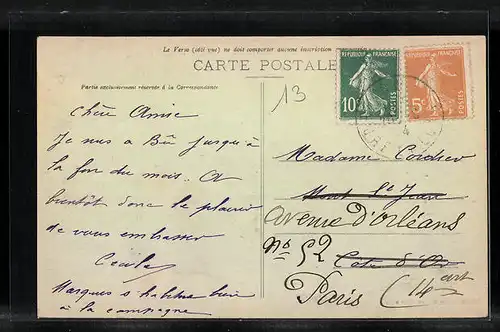 Le Verso (côté vue) ne doit comporter aucune inscription
CARTE POSTALE
Partie exclusivement réservée à la Correspondance
13
RÉPUBLIQUE FRANÇAISE
10c
POSTES
RÉPUBLIQUE FRANÇAISE
5c
POSTES
Chère Amie
Je suis à Bû jusqu'à
la fin du mois. A
bientôt donc le plaisir
de vous embrasser
Cécile
à la campagne
Madame Cordier
Mont St Jean
avenue d'Orléans
No 52
Cote d'Or
Paris (14 art